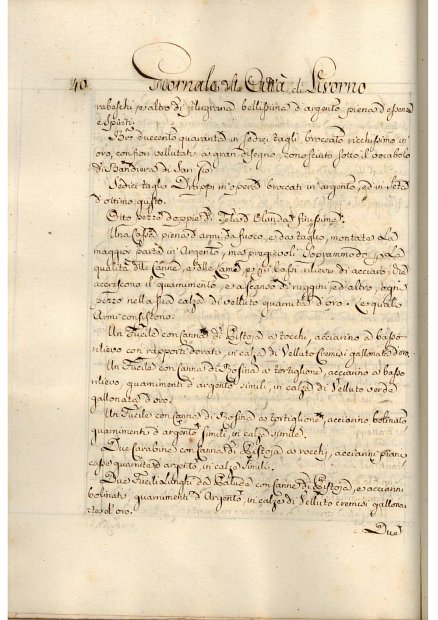 40 Giornale di Città di Livorno
rabeschi e altro di filugrana bellissima d'argento piena d'essenze
e Spiriti.
Bra: duecento quaranta in sedici tagli broccato ricchissimo in
oro, con fiori vellutati a gran disegno, conosciuto sotto il vocabolo
di Bandiera di San Pio.
Sedici taglio Drappi in opera broccati in argento, ed in seta
d'ultimo gusto.
Otto pezze doppie di Tela d'Olanda finissime.
Una Cassa piena d'armi da fuoco, e da taglio, montate la
maggior parte in Argento, ma pregievoli soprammodo la
qualità delle Canne, e delle Lame, e i bassi rilievi di acciaro che
accrescono il guarnimento, e a seguo di ruggini ed altro, ogni
pezzo nella sua calza di velluto guarnita d'oro. Le quale
Armi consistono.
Un Fucile con canna di Pistoja a rocchi, acciarino a basso
rilievo con rapporti dorati, in calza di Velluto Cremisi gallonata d'oro.
Un Fucile con Canna di Rosina a tortiglione, acciarino a basso
rilievo, guarnimenti d'argento simili, in calza di Velluto verde
gallonata d'oro.
Un Fucile con Canna di Rosina a tortiglione, acciarino bolinato
guarnimenti d'argento simili, in calza simile.
Due Carabine con Canna di Pistoja a rocchi, acciarini pian
casso guarnite d'argento, in calze simili.
Due Fucili Lunghi da Palude con Canne di Pistoja, e acciarini
bolinati, guarnimenti d'Argento, in calze di Velluto cremisi gallona
te d'oro.
Due